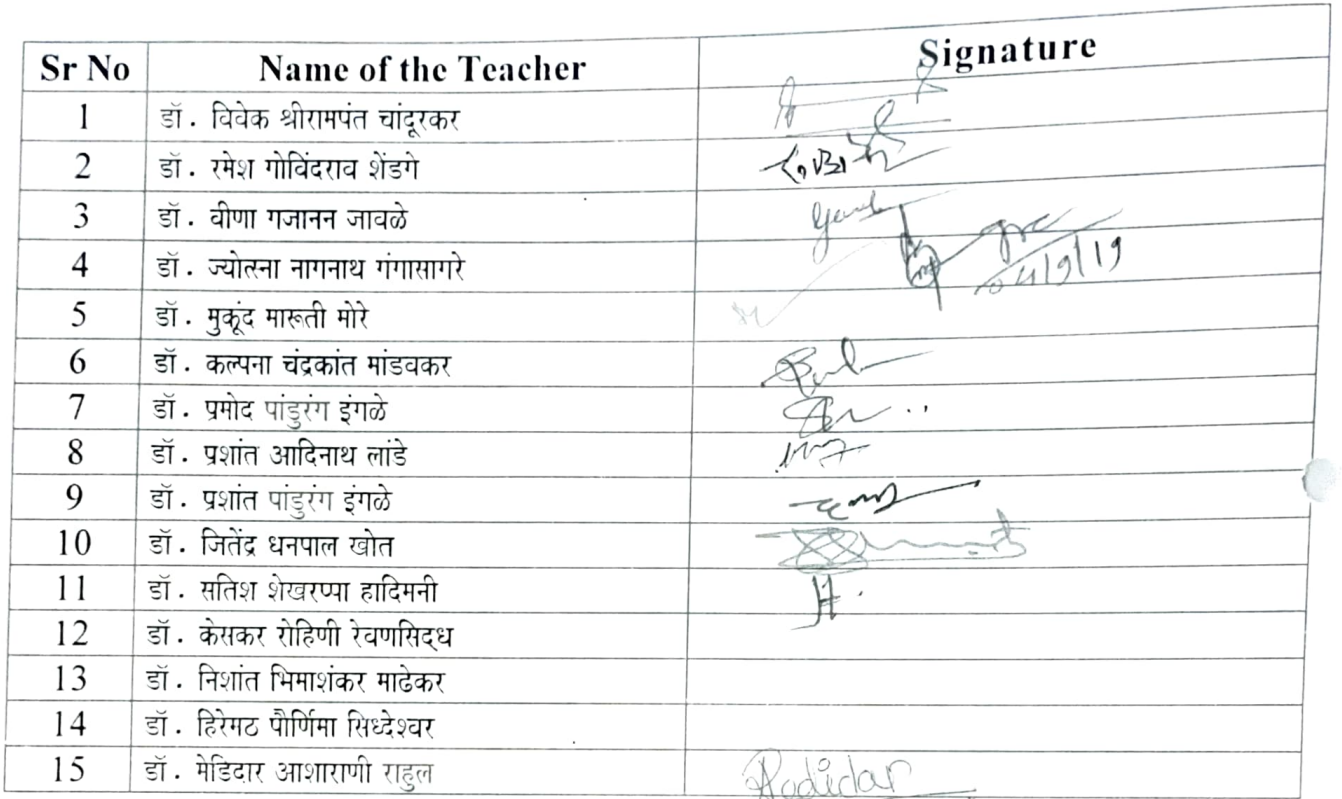 Sr No Name of the Teacher Signature
1 डॉ. विवेक श्रीरामपंत चांदूरकर
2 डॉ. रमेश गोविंदराव शेंडगे
3 डॉ. वीणा गजानन जावळे
4 डॉ. ज्योत्स्ना नागनाथ गंगासागरे 04/9/19
5 डॉ. मुकूंद मारूती मोरे
6 डॉ. कल्पना चंद्रकांत मांडवकर
7 डॉ. प्रमोद पांडुरंग इंगळे
8 डॉ. प्रशांत आदिनाथ लांडे
9 डॉ. प्रशांत पांडुरंग इंगळे
10 डॉ. जितेंद्र धनपाल खोत
11 डॉ. सतिश शेखरप्पा हादिमनी
12 डॉ. केसकर रोहिणी रेवणसिद्ध
13 डॉ. निशांत भिमाशंकर माढेकर
14 डॉ. हिरेमठ पौर्णिमा सिध्देश्वर
15 डॉ. मेडिदार आशाराणी राहुल